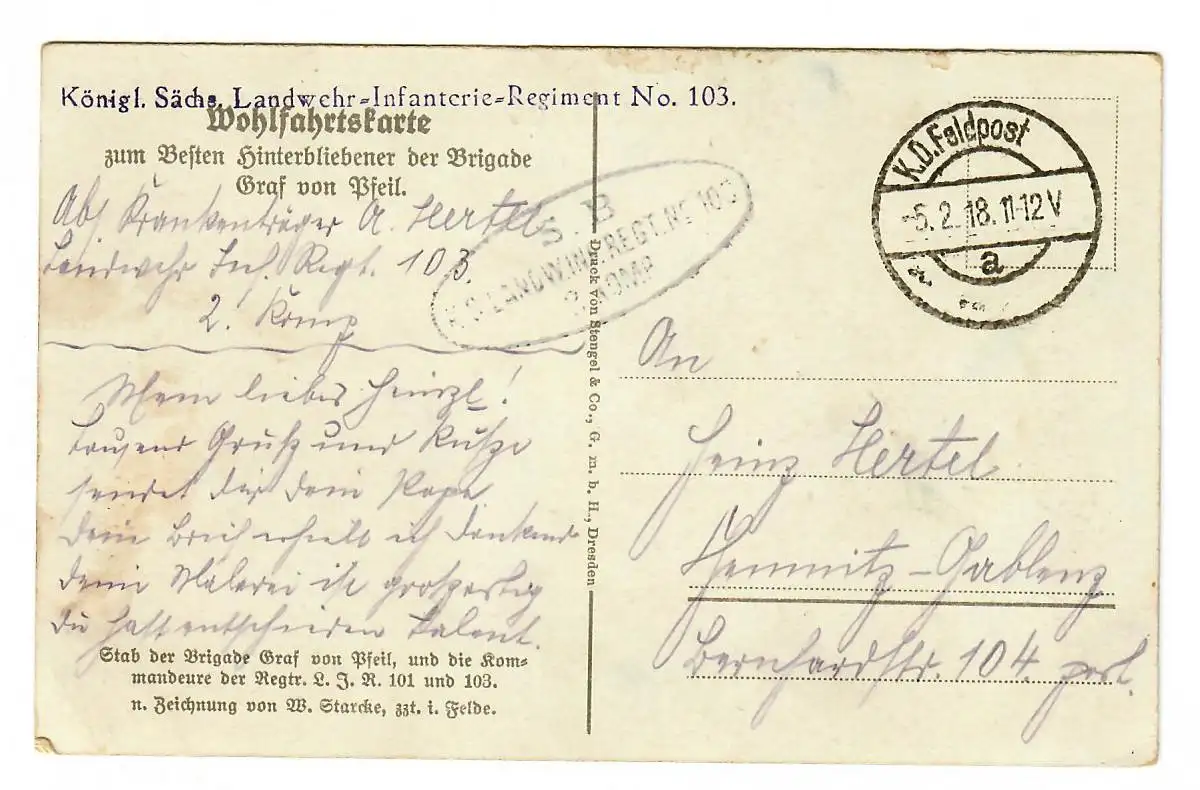 Königl. Sächs. Landwehr-Infanterie-Regiment No. 103.
Wohlfahrtskarte
zum Besten Hinterbliebener der Brigade
Graf von Pfeil.
Abs Krankenträger A. Hertel
Landwehr Inf. Regt. 103.
2. Komp
S. B
K.S. LANDW. INF. REGT. No 103
2. KOMP.
K.D. Feldpost
-5.2.18. 11-12 V
a
Mein liebes Heinzl!
Tausend Grüße und Küsse
sendet dir dein Papa
dein Brief erhielt ich dankend
deine Malerei ist großartig
du hast entschieden Talent.
Stab der Brigade Graf von Pfeil, und die Kom-
mandeure der Regtr. L. J. R. 101 und 103.
n. Zeichnung von W. Starcke, zzt. i. Felde.
Druck von Stengel & Co., G. m. b. H., Dresden
An
Heinz Hertel
Chemnitz-Gablenz
Bernhardstr. 104. part.